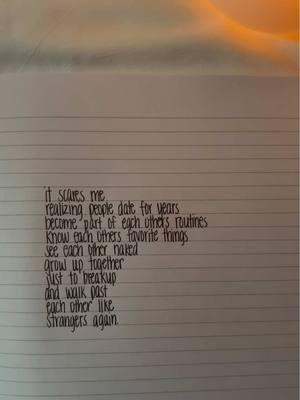 it scares me
realizing people date for years
become part of each others routines
know each others favorite things
see each other naked
grow up together
just to breakup
and walk past
each other like
strangers again.